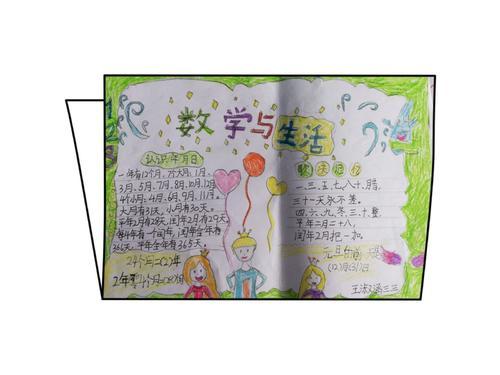 数学与生活
认识年月日
一年有12个月,7个大月:1月、
3月、5月、7月、8月、10月、12月
4个小月:4月、6月、9月、11月。
大月有31天,小月有30天。
平年2月有28天,闰年2月有29天
每4年有一个闰年,闰年全年有
366天,平年全年有365天。
24个月=(2)年
一、三、五、七、八、十、腊,
三十一天永不差。
四、六、九、冬、三十整,
平年二月二十八,
闰年2月把一加。
元旦的前一天是
(12)月(31)日